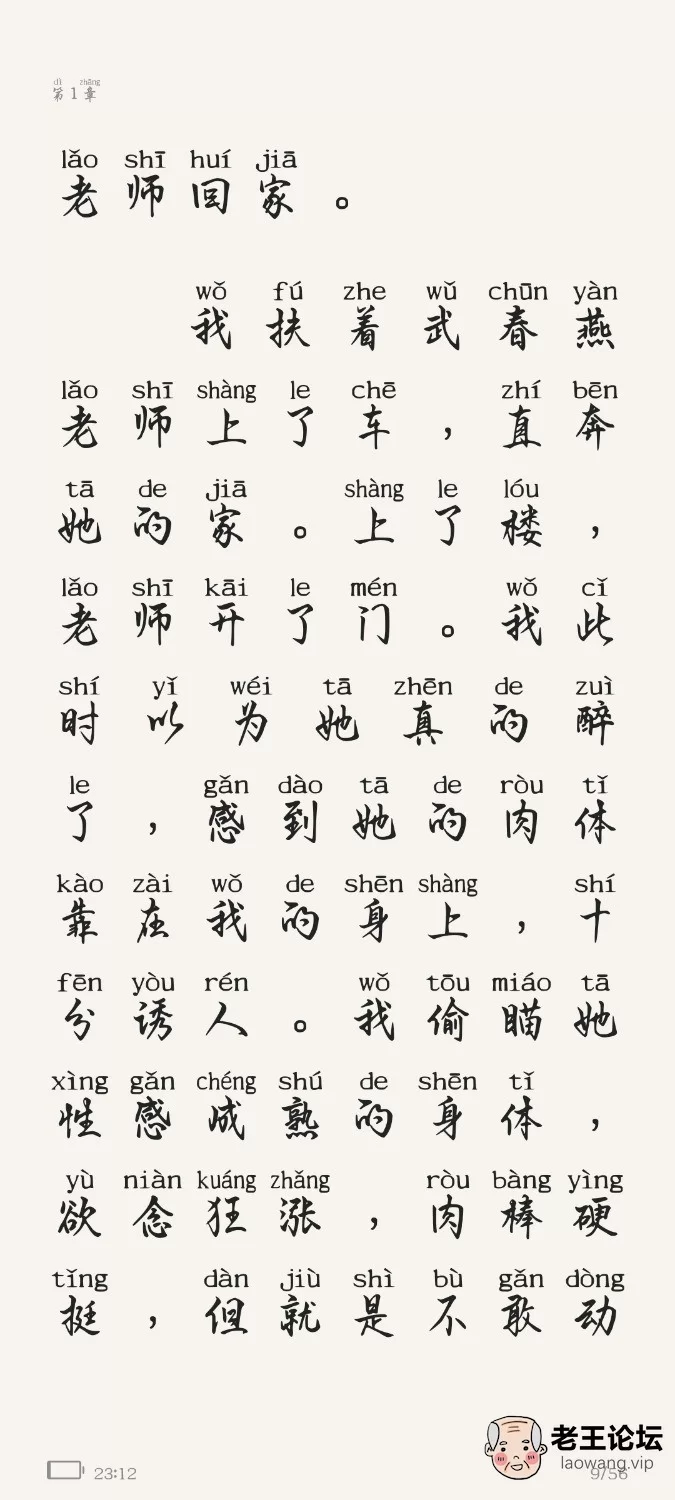 dì zhāng
第1章
lǎo shī huí jiā
老师回家。
wǒ fú zhe wǔ chūn yàn
我扶着武春燕
lǎo shī shàng le chē zhí bēn
老师上了车，直奔
tā de jiā shàng le lóu
她的家。上了楼，
lǎo shī kāi le mén wǒ cǐ
老师开了门。我此
shí yǐ wéi tā zhēn de zuì
时以为她真的醉
le gǎn dào tā de ròu tǐ
了，感到她的肉体
kào zài wǒ de shēn shàng shí
靠在我的身上，十
fēn yòu rén wǒ tōu miáo tā
分诱人。我偷瞄她
xìng gǎn chéng shú de shēn tǐ
性感成熟的身体，
yù niàn kuáng zhǎng ròu bàng yìng
欲念狂涨，肉棒硬
tǐng dàn jiù shì bù gǎn dòng
挺，但就是不敢动
老王论坛
laowang.vip
23:12 9/56